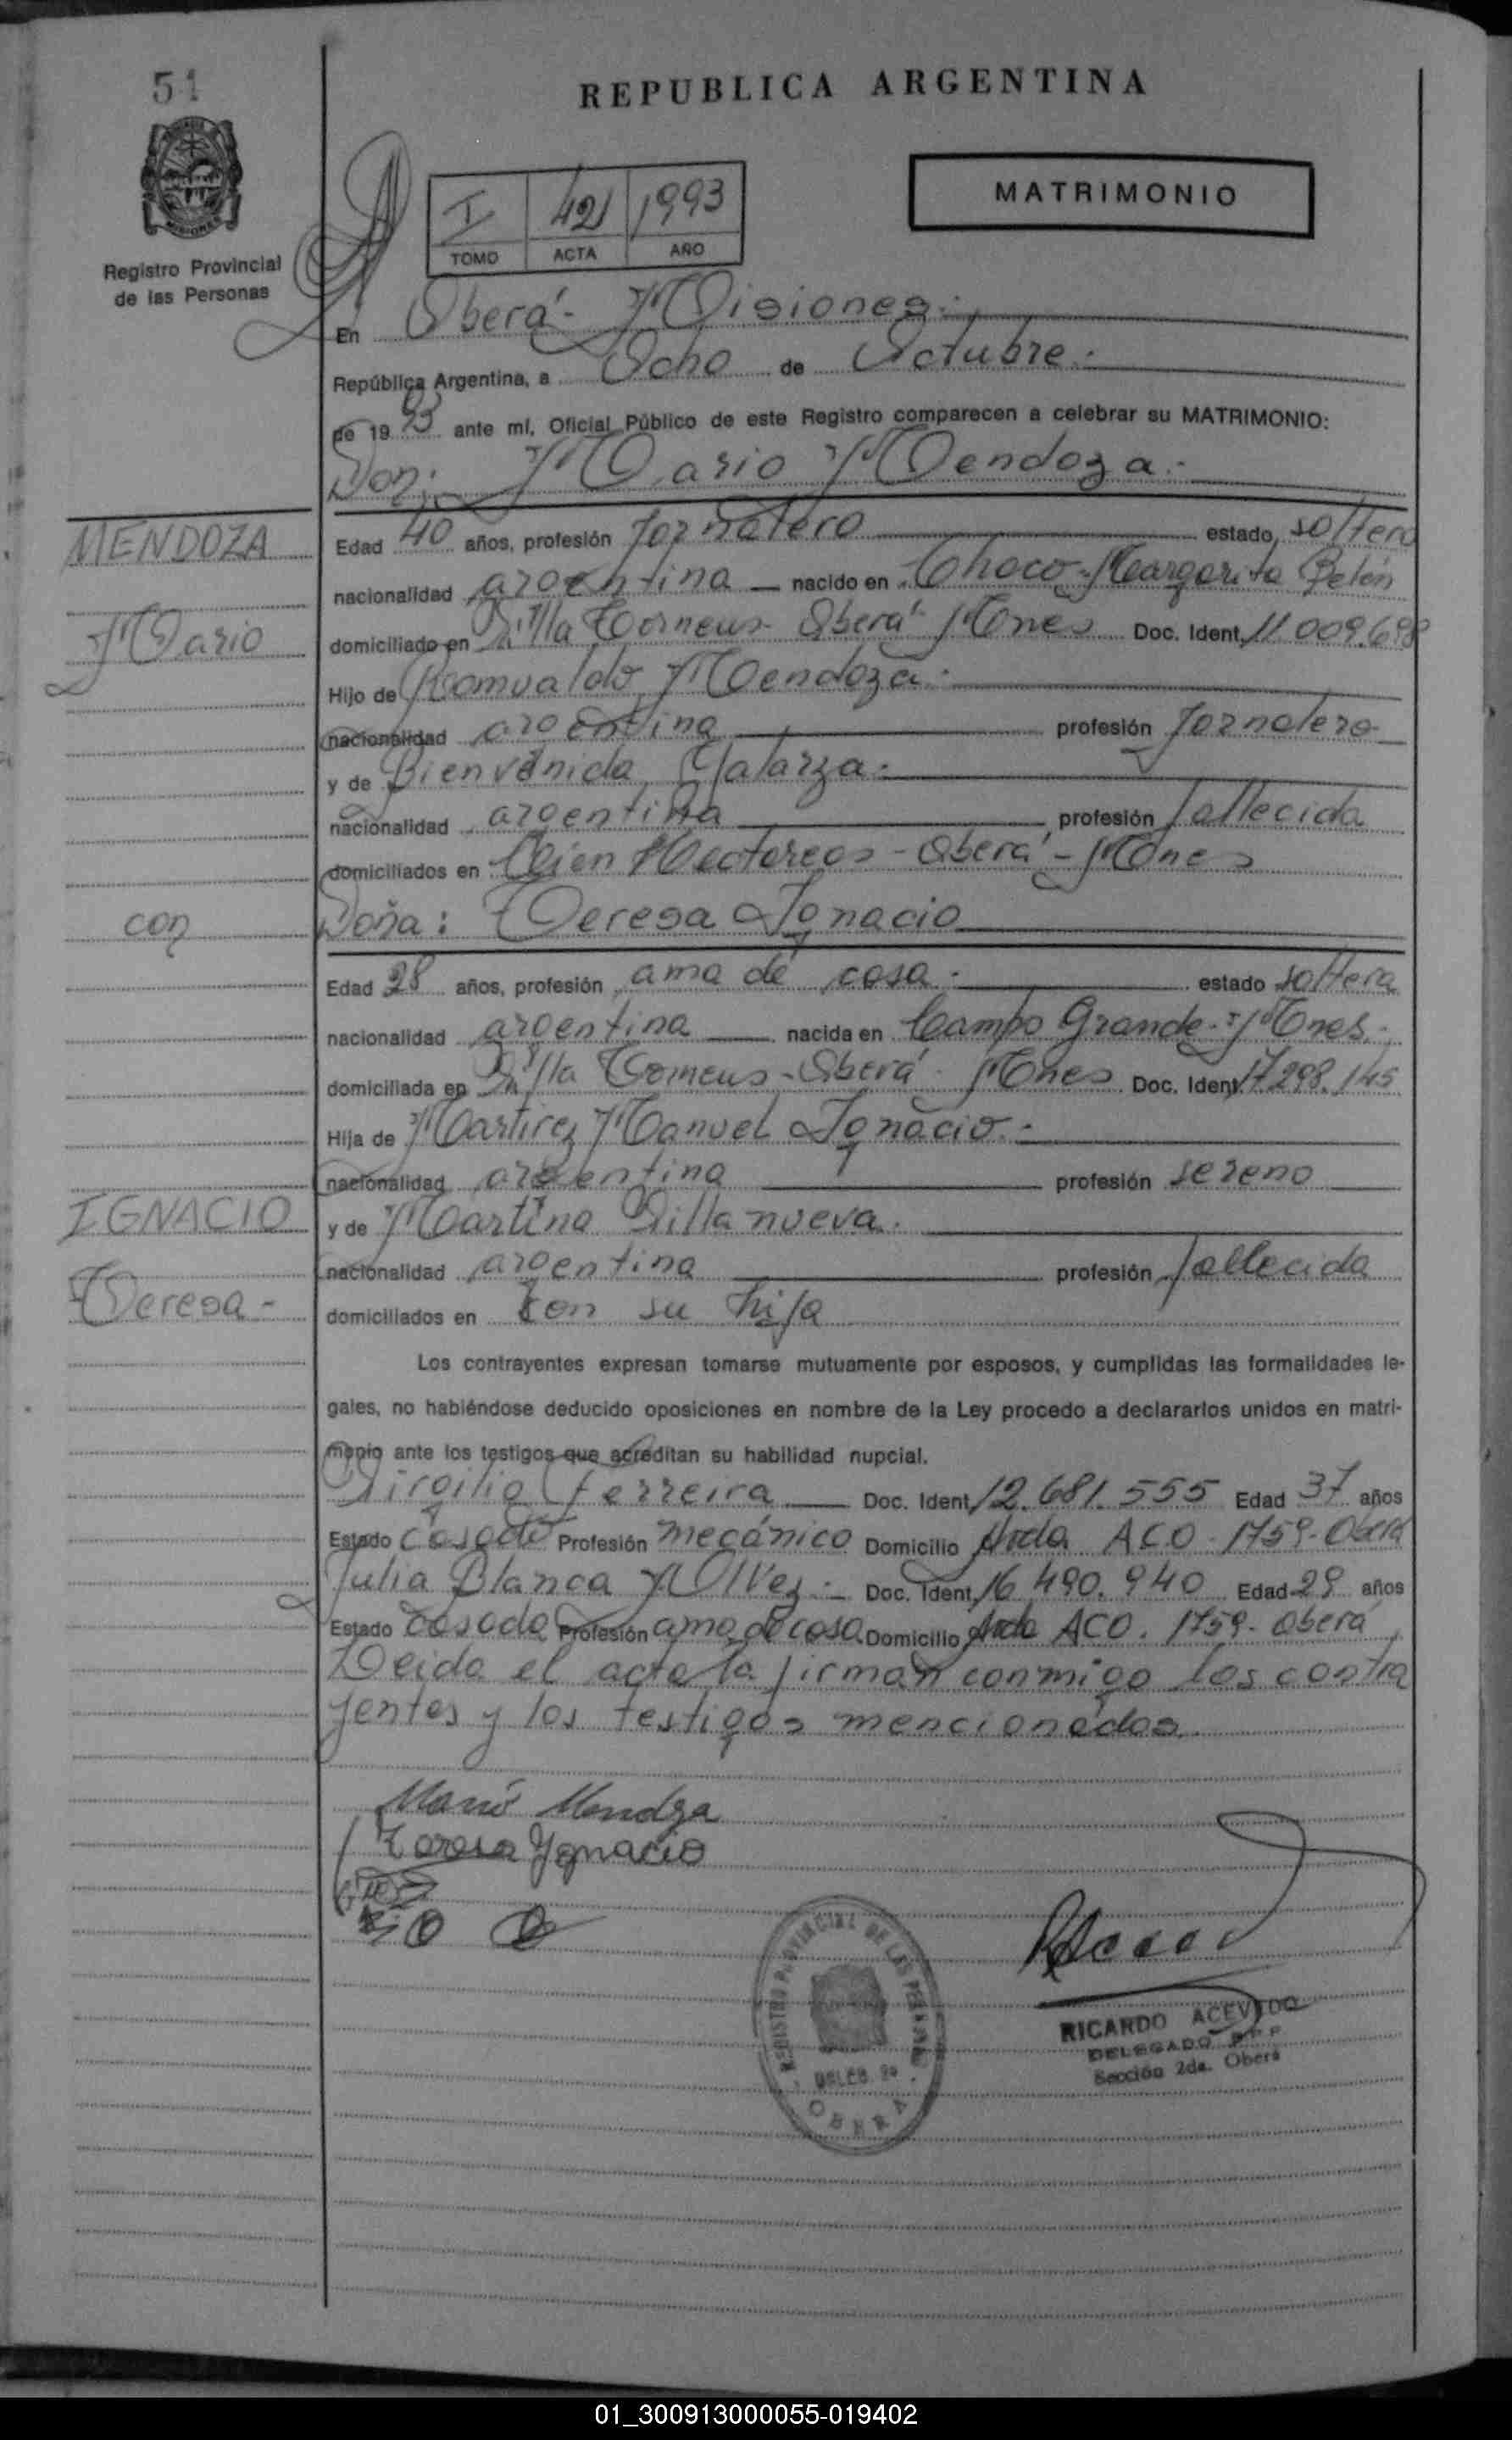 51
REPUBLICA ARGENTINA
MISIONES
Registro Provincial
de las Personas
I 421 1993
TOMO ACTA AÑO
MATRIMONIO
En Oberá - Misiones.-
República Argentina, a Ocho de Octubre.-
de 19 93 ante mí, Oficial Público de este Registro comparecen a celebrar su MATRIMONIO:
Don: Mario Mendoza.-
MENDOZA
Mario
Edad 40 años, profesión Jornalero estado soltero
nacionalidad argentina nacido en Chaco - Margarita Belén
domiciliado en Villa Torneus - Oberá Mnes Doc. Ident. 11.009.698
Hijo de Romualdo Mendoza.-
nacionalidad argentina profesión Jornalero
y de Bienvenida Galarza.-
nacionalidad argentina profesión fallecida
domiciliados en Cien Hectareas - Oberá - Mnes
con
Doña: Teresa Ignacio
Edad 28 años, profesión ama de casa.- estado soltera
nacionalidad argentina nacida en Campo Grande - Mnes.-
domiciliada en Villa Torneus - Oberá - Mnes Doc. Ident. 17.298.145
Hija de Martirez Manuel Ignacio.-
nacionalidad argentina profesión sereno
IGNACIO
Teresa -
y de Martina Villanueva.
nacionalidad argentina profesión fallecida
domiciliados en Con su hija
Los contrayentes expresan tomarse mutuamente por esposos, y cumplidas las formalidades le-
gales, no habiéndose deducido oposiciones en nombre de la Ley procedo a declararlos unidos en matri-
monio ante los testigos que acreditan su habilidad nupcial.
Virgilio Ferreira Doc. Ident. 12.681.555 Edad 37 años
Estado Casado Profesión mecánico Domicilio Avda ACO. 1759 - Oberá
Julia Blanca Alvez.- Doc. Ident. 16.490.940 Edad 29 años
Estado Casada Profesión ama de casa Domicilio Avda ACO. 1759 - Oberá
Leida el acta la firman conmigo los contra
yentes y los testigos mencionados.
Mario Mendza
Teresa Ygnacio
REGISTRO PROVINCIAL DE LAS PERSONAS
DELEG. 2a
OBERA
RICARDO ACEVEDO
DELEGADO R.P.P.
Sección 2da. Oberá
01_300913000055-019402